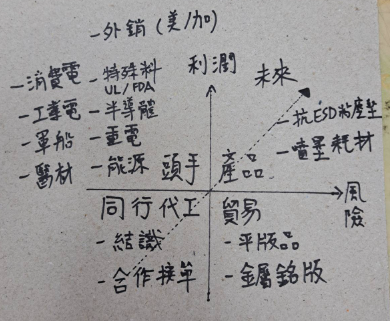 -外銷(美/加)
利潤
未來
-消費電
-工業電
-軍船
-醫材
-特殊料
UL/FDA
-半導體
-重電
-能源
頭手
產品
-抗ESD粘塵墊
-噴墨耗材
風險
同行代工
-結識
-合作接單
貿易
-平版品
-金屬銘版